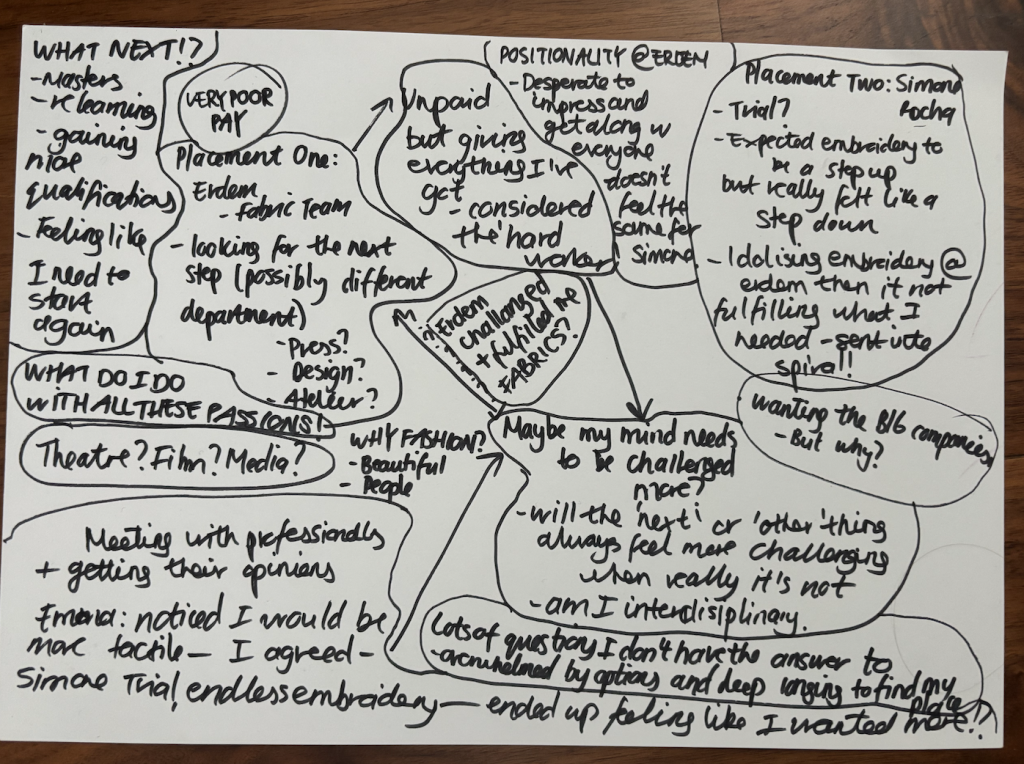 WHAT NEXT!?
- Masters
- relearning
- gaining
more
qualifications
- Feeling like
I need to
start
again
VERY POOR
PAY
Placement One:
Erdem
- Fabric Team
- looking for the next
step (possibly different
department)
- Press?
- Design?
- Atelier?
Unpaid
but giving
everything I've
got
- considered
the 'hard
worker
POSITIONALITY @ ERDEM
- Desperate to
impress and
get along w
everyone
doesn't
feel the
same for
Simone
Placement Two: Simone
Rocha
- Trial?
- Expected embroidery to
be a step up
but really felt like a
step down
- Idolising embroidery @
erdem then it not
fulfilling what I
needed - sent into
spiral!!
Erdem
challenged
+ fulfilled me
FABRICS?
WHAT DO I DO
WITH ALL THESE PASSIONS!
Theatre? Film? Media?
WHY FASHION?
- Beautiful
- People
Maybe my mind needs
to be challenged
more?
- will the 'next' or 'other' thing
always feel more challenging
when really it's not
- am I interdisiplinary.
wanting the BIG companies
- But why?
Meeting with professionals
+ getting their opinions
noticed I would be
more tactile — I agreed -
Simone Trial, endless embroidery — ended up feeling like I wanted more!?
Lots of questions I don't have the answer to
- overwhelmed by options and deep longing to find my
place